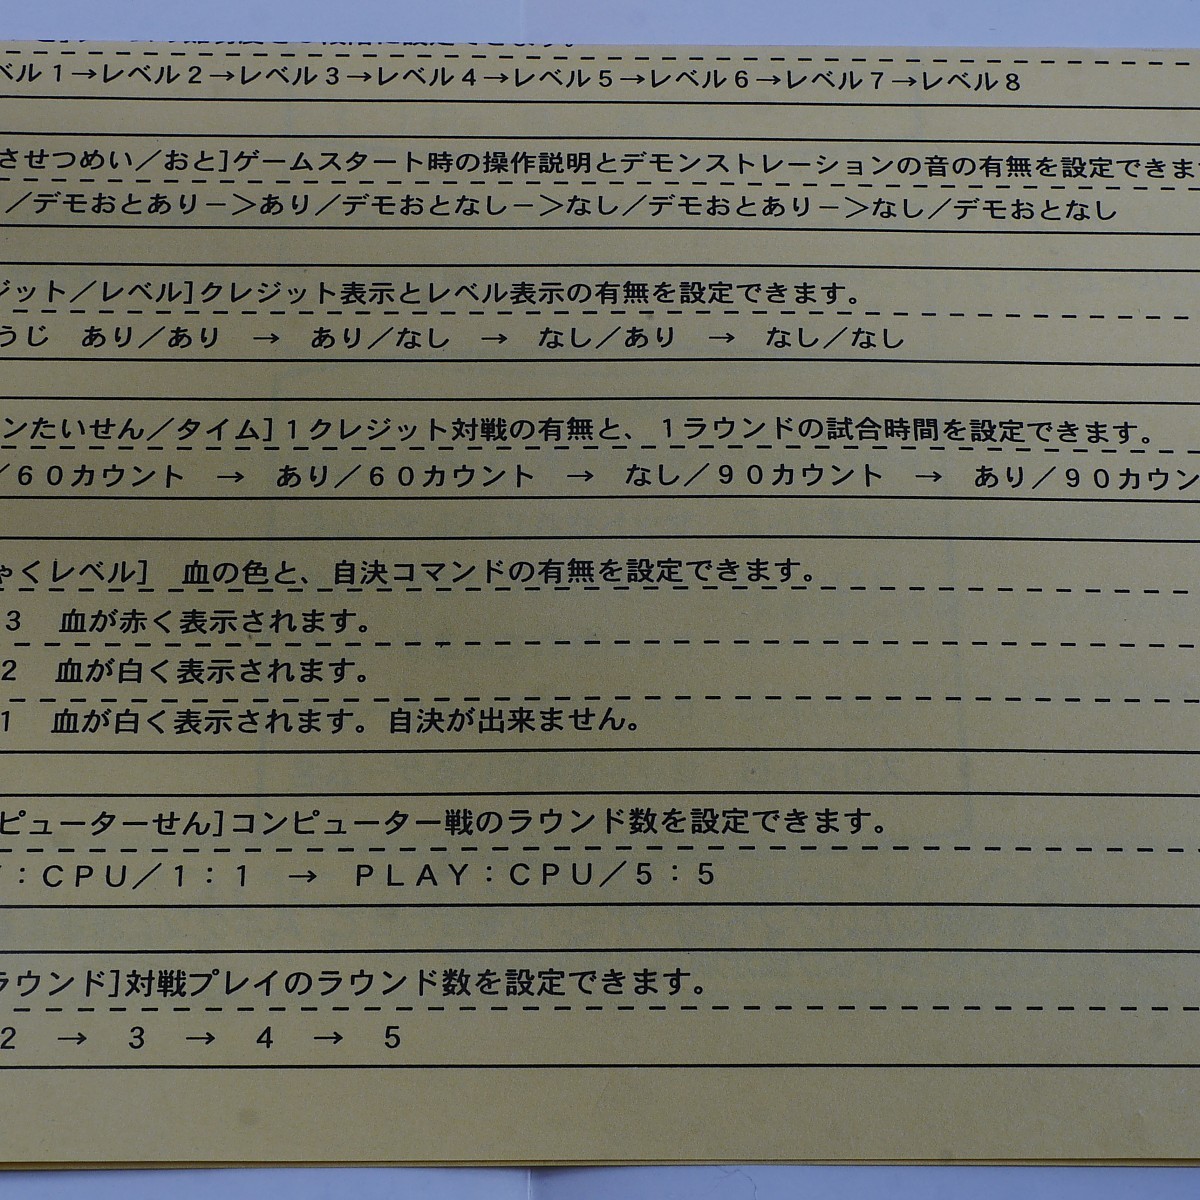 ベル１→レベル２→レベル３→レベル４→レベル５→レベル６→レベル７→レベル８
させつめい／おと]ゲームスタート時の操作説明とデモンストレーションの音の有無を設定できます
／デモおとあり－＞あり／デモおとなし－＞なし／デモおとあり－＞なし／デモおとなし
ジット／レベル]クレジット表示とレベル表示の有無を設定できます。
うじ　あり／あり　→　あり／なし　→　なし／あり　→　なし／なし
ンたいせん／タイム]１クレジット対戦の有無と、１ラウンドの試合時間を設定できます。
／６０カウント　→　あり／６０カウント　→　なし／９０カウント　→　あり／９０カウン
ゃくレベル]　血の色と、自決コマンドの有無を設定できます。
３　血が赤く表示されます。
２　血が白く表示されます。
１　血が白く表示されます。自決が出来ません。
ピューターせん]コンピューター戦のラウンド数を設定できます。
Ｙ：ＣＰＵ／１：１　→　ＰＬＡＹ：ＣＰＵ／５：５
ラウンド]対戦プレイのラウンド数を設定できます。
２　→　３　→　４　→　５